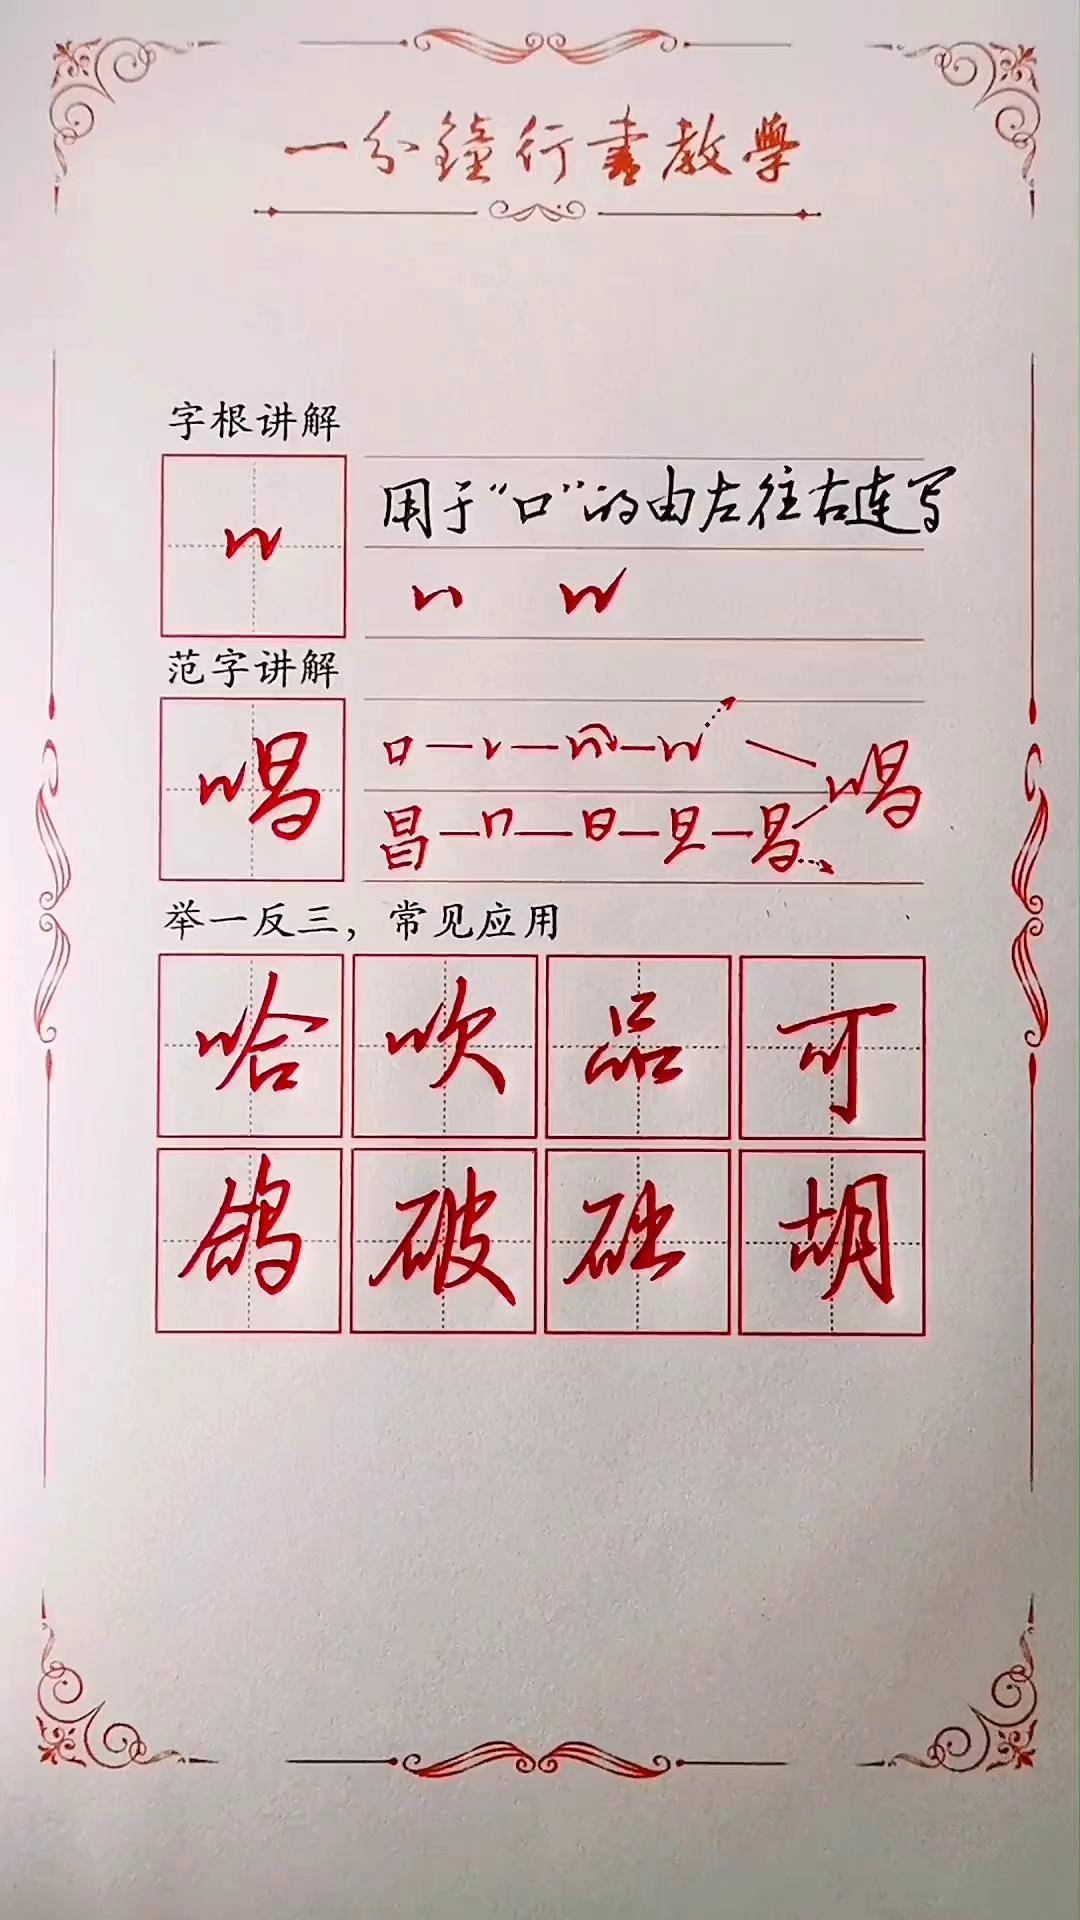 一分鐘行書教學
字根讲解
用于“口”的由左往右连写
范字讲解
唱
口 唱
昌 日 旦 昌
举一反三，常见应用
哈 吹 品 可
鸽 破 础 胡